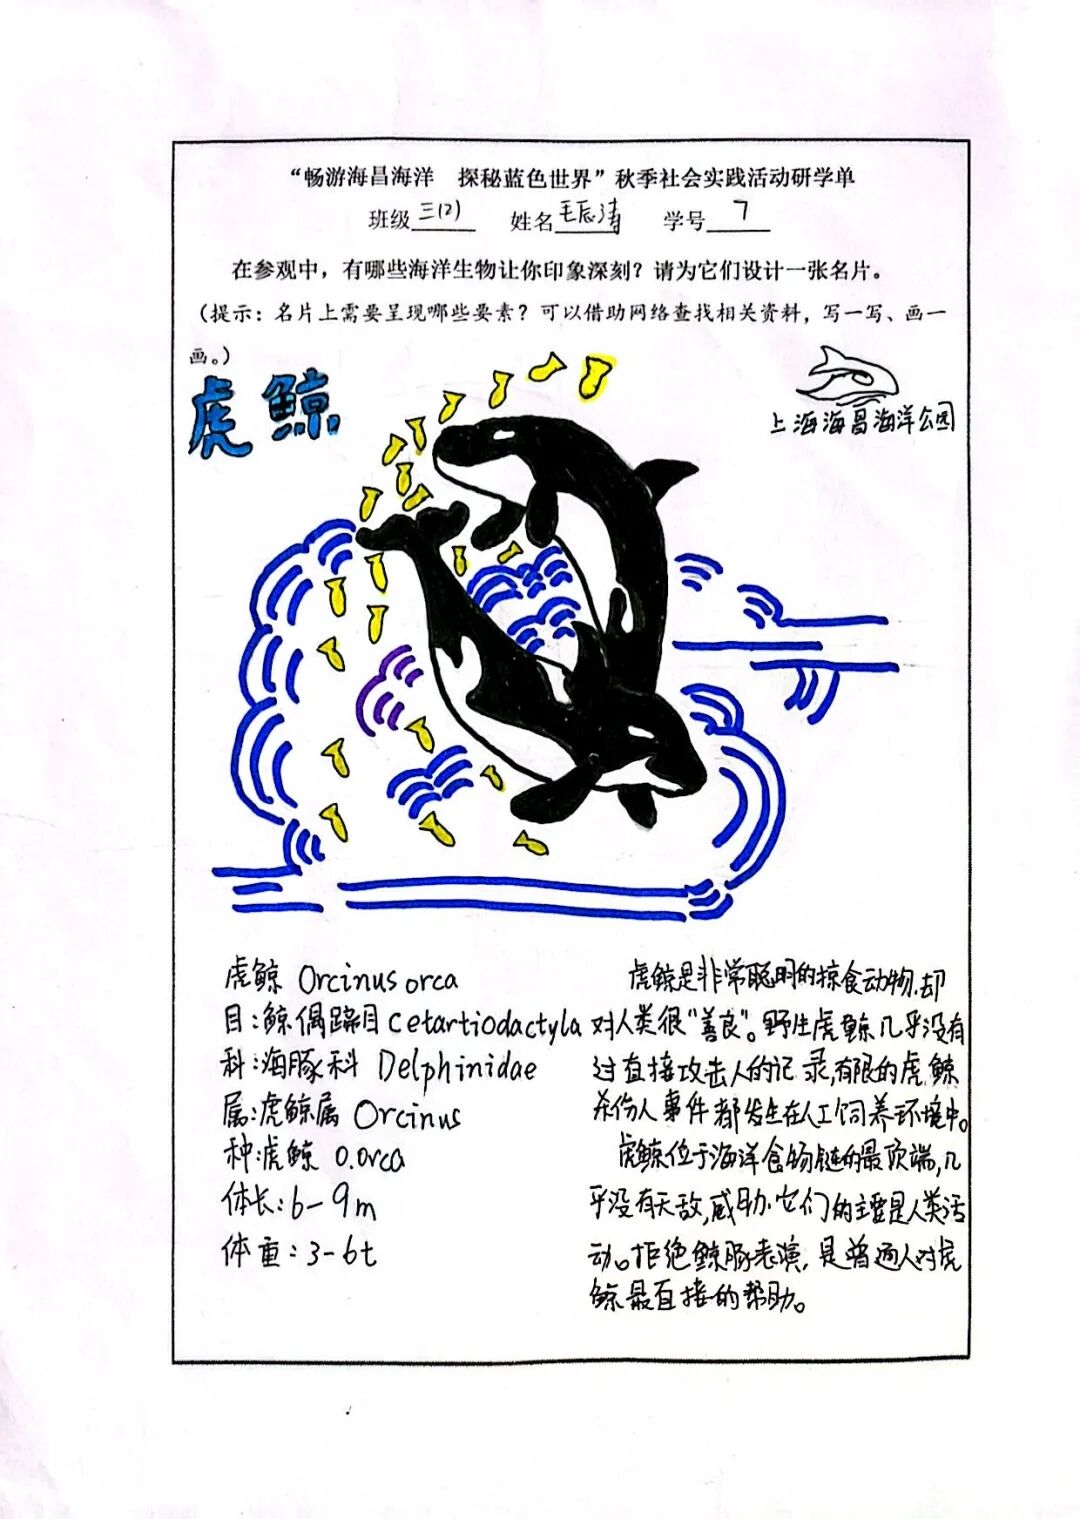 “畅游海昌海洋 探秘蓝色世界”秋季社会实践活动研学单
班级 三(2) 姓名 王辰涛 学号 7
在参观中，有哪些海洋生物让你印象深刻？请为它们设计一张名片。
（提示：名片上需要呈现哪些要素？可以借助网络查找相关资料，写一写、画一
画。）
虎鲸
上海海昌海洋公园
虎鲸 Orcinus orca
目:鲸偶蹄目 Cetartiodactyla
科:海豚科 Delphinidae
属:虎鲸属 Orcinus
种:虎鲸 O.orca
体长:6-9m
体重:3-6t
虎鲸是非常聪明的掠食动物,却
对人类很“善良”。野生虎鲸几乎没有
过直接攻击人的记录,有限的虎鲸
杀伤人事件都发生在人工饲养环境中。
虎鲸位于海洋食物链的最顶端,几
乎没有天敌,威胁它们的主要是人类活
动。拒绝鲸豚表演,是普通人对虎
鲸最直接的帮助。